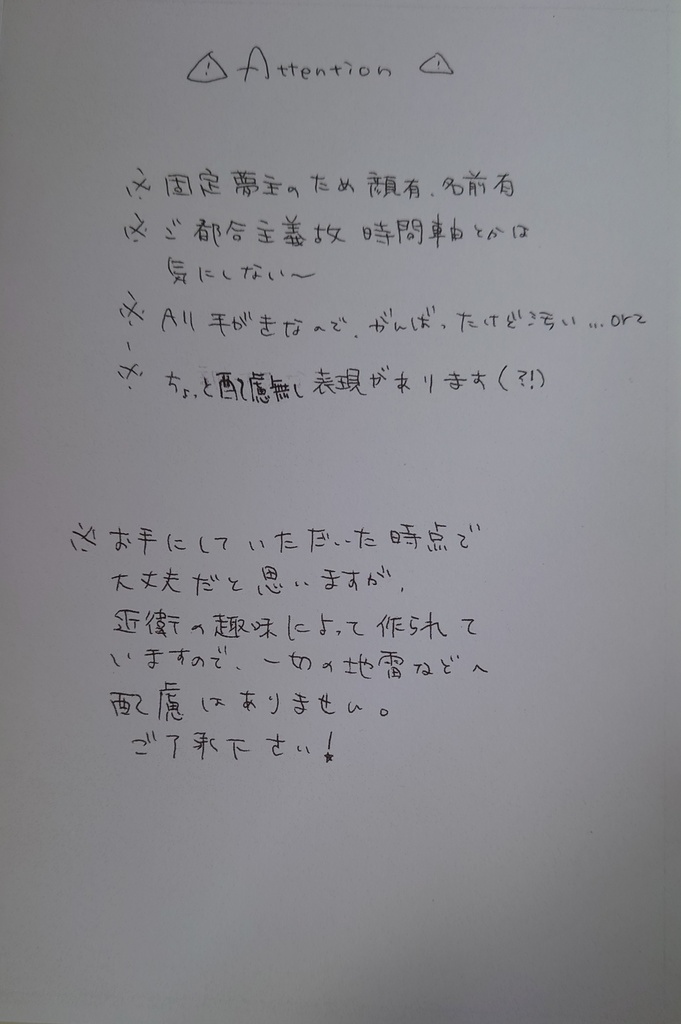 ⚠ Attention ⚠
※ 固定夢主のため顔有、名前有
※ ご都合主義故 時間軸とかは
気にしない〜
※ All 手がきなので、がんばったけど汚い...orz
※ ちょっと配慮無し表現があります(?!)
※ お手にしていただいた時点で
大丈夫だと思いますが、
近衛の趣味によって作られて
いますので、一切の地雷などへ
配慮はありません。
ご了承下さい!